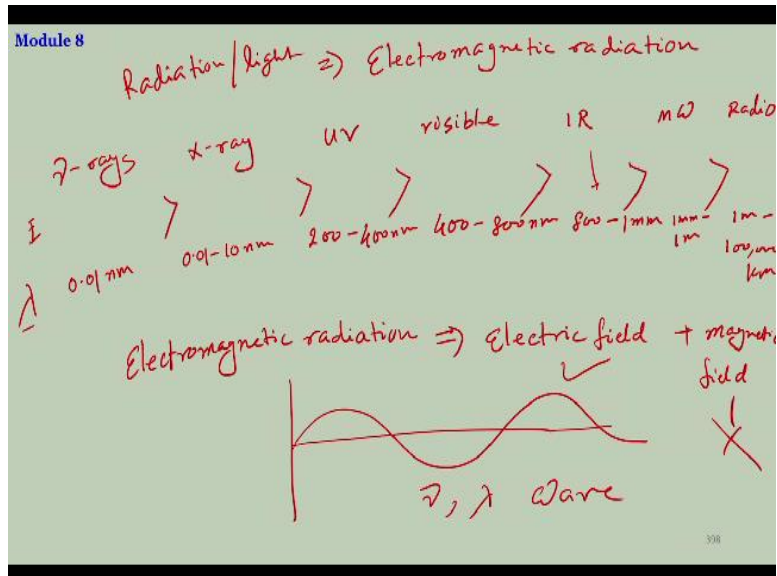 Module 8
Radiation/light ⇒ Electromagnetic radiation
γ-rays x-ray UV visible IR MW Radio
E > > > > > >
λ 0.01 nm 0.01-10 nm 200-400nm 400-800nm 800-1mm 1mm-1m 1m-100,000 km
Electromagnetic radiation ⇒ Electric field + magnetic field
ν, λ wave
398